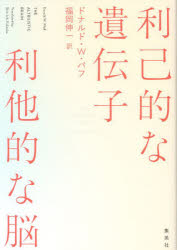 利己的な
遺伝子
ドナルド・W・パフ
福岡伸一 訳
THE
ALTRUISTIC
BRAIN
利他的な脳
集英社